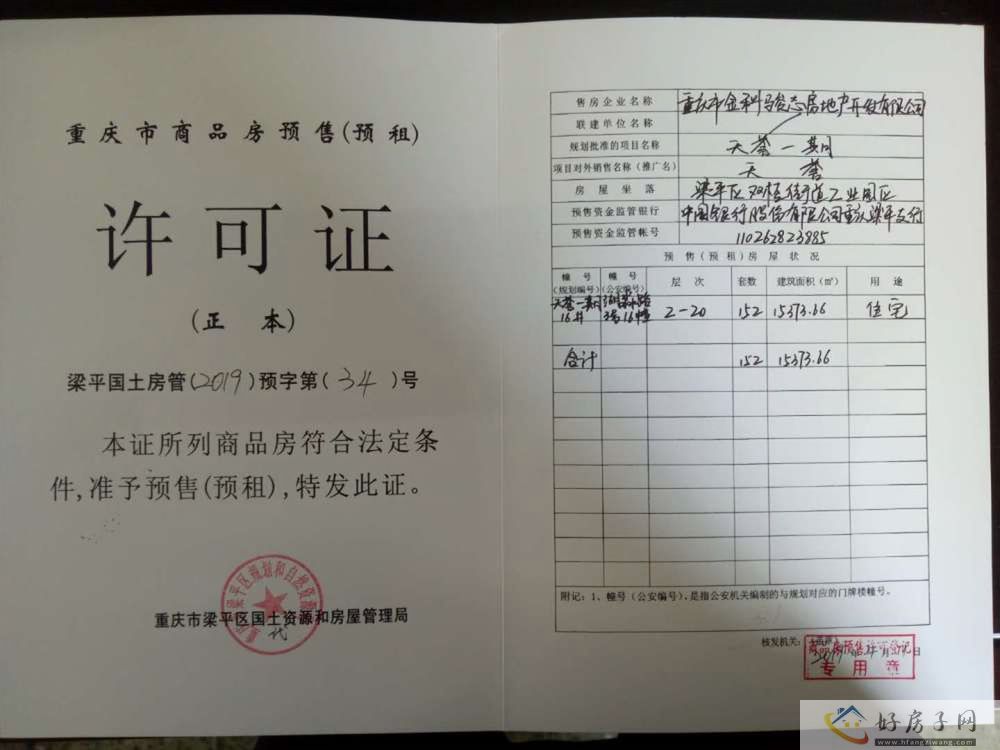 重庆市商品房预售(预租)
许可证
(正本)
梁平国土房管(2019)预字第(34)号
本证所列商品房符合法定条
件,准予预售(预租),特发此证。
重庆市梁平区国土资源和房屋管理局
代
售房企业名称 重庆市金科骏志房地产开发有限公司
联建单位名称
规划批准的项目名称 天荟一期
项目对外销售名称(推广名) 天荟
房屋坐落 梁平区双桂街道工业园区
预售资金监管银行 中国银行股份有限公司重庆梁平支行
预售资金监管帐号 110262823885
预售(预租)房屋状况
幢号(规划编号) 幢号(公安编号) 层次 套数 建筑面积(㎡) 用途
天荟一期16# 3号16幢 2-20 152 15373.66 住宅
合计 152 15373.66
附记:1、幢号(公安编号),是指公安机关编制的与规划对应的门牌楼幢号。
核发机关:
商品房预售许可登记
专用章
好房子网
www.hfangziwang.com